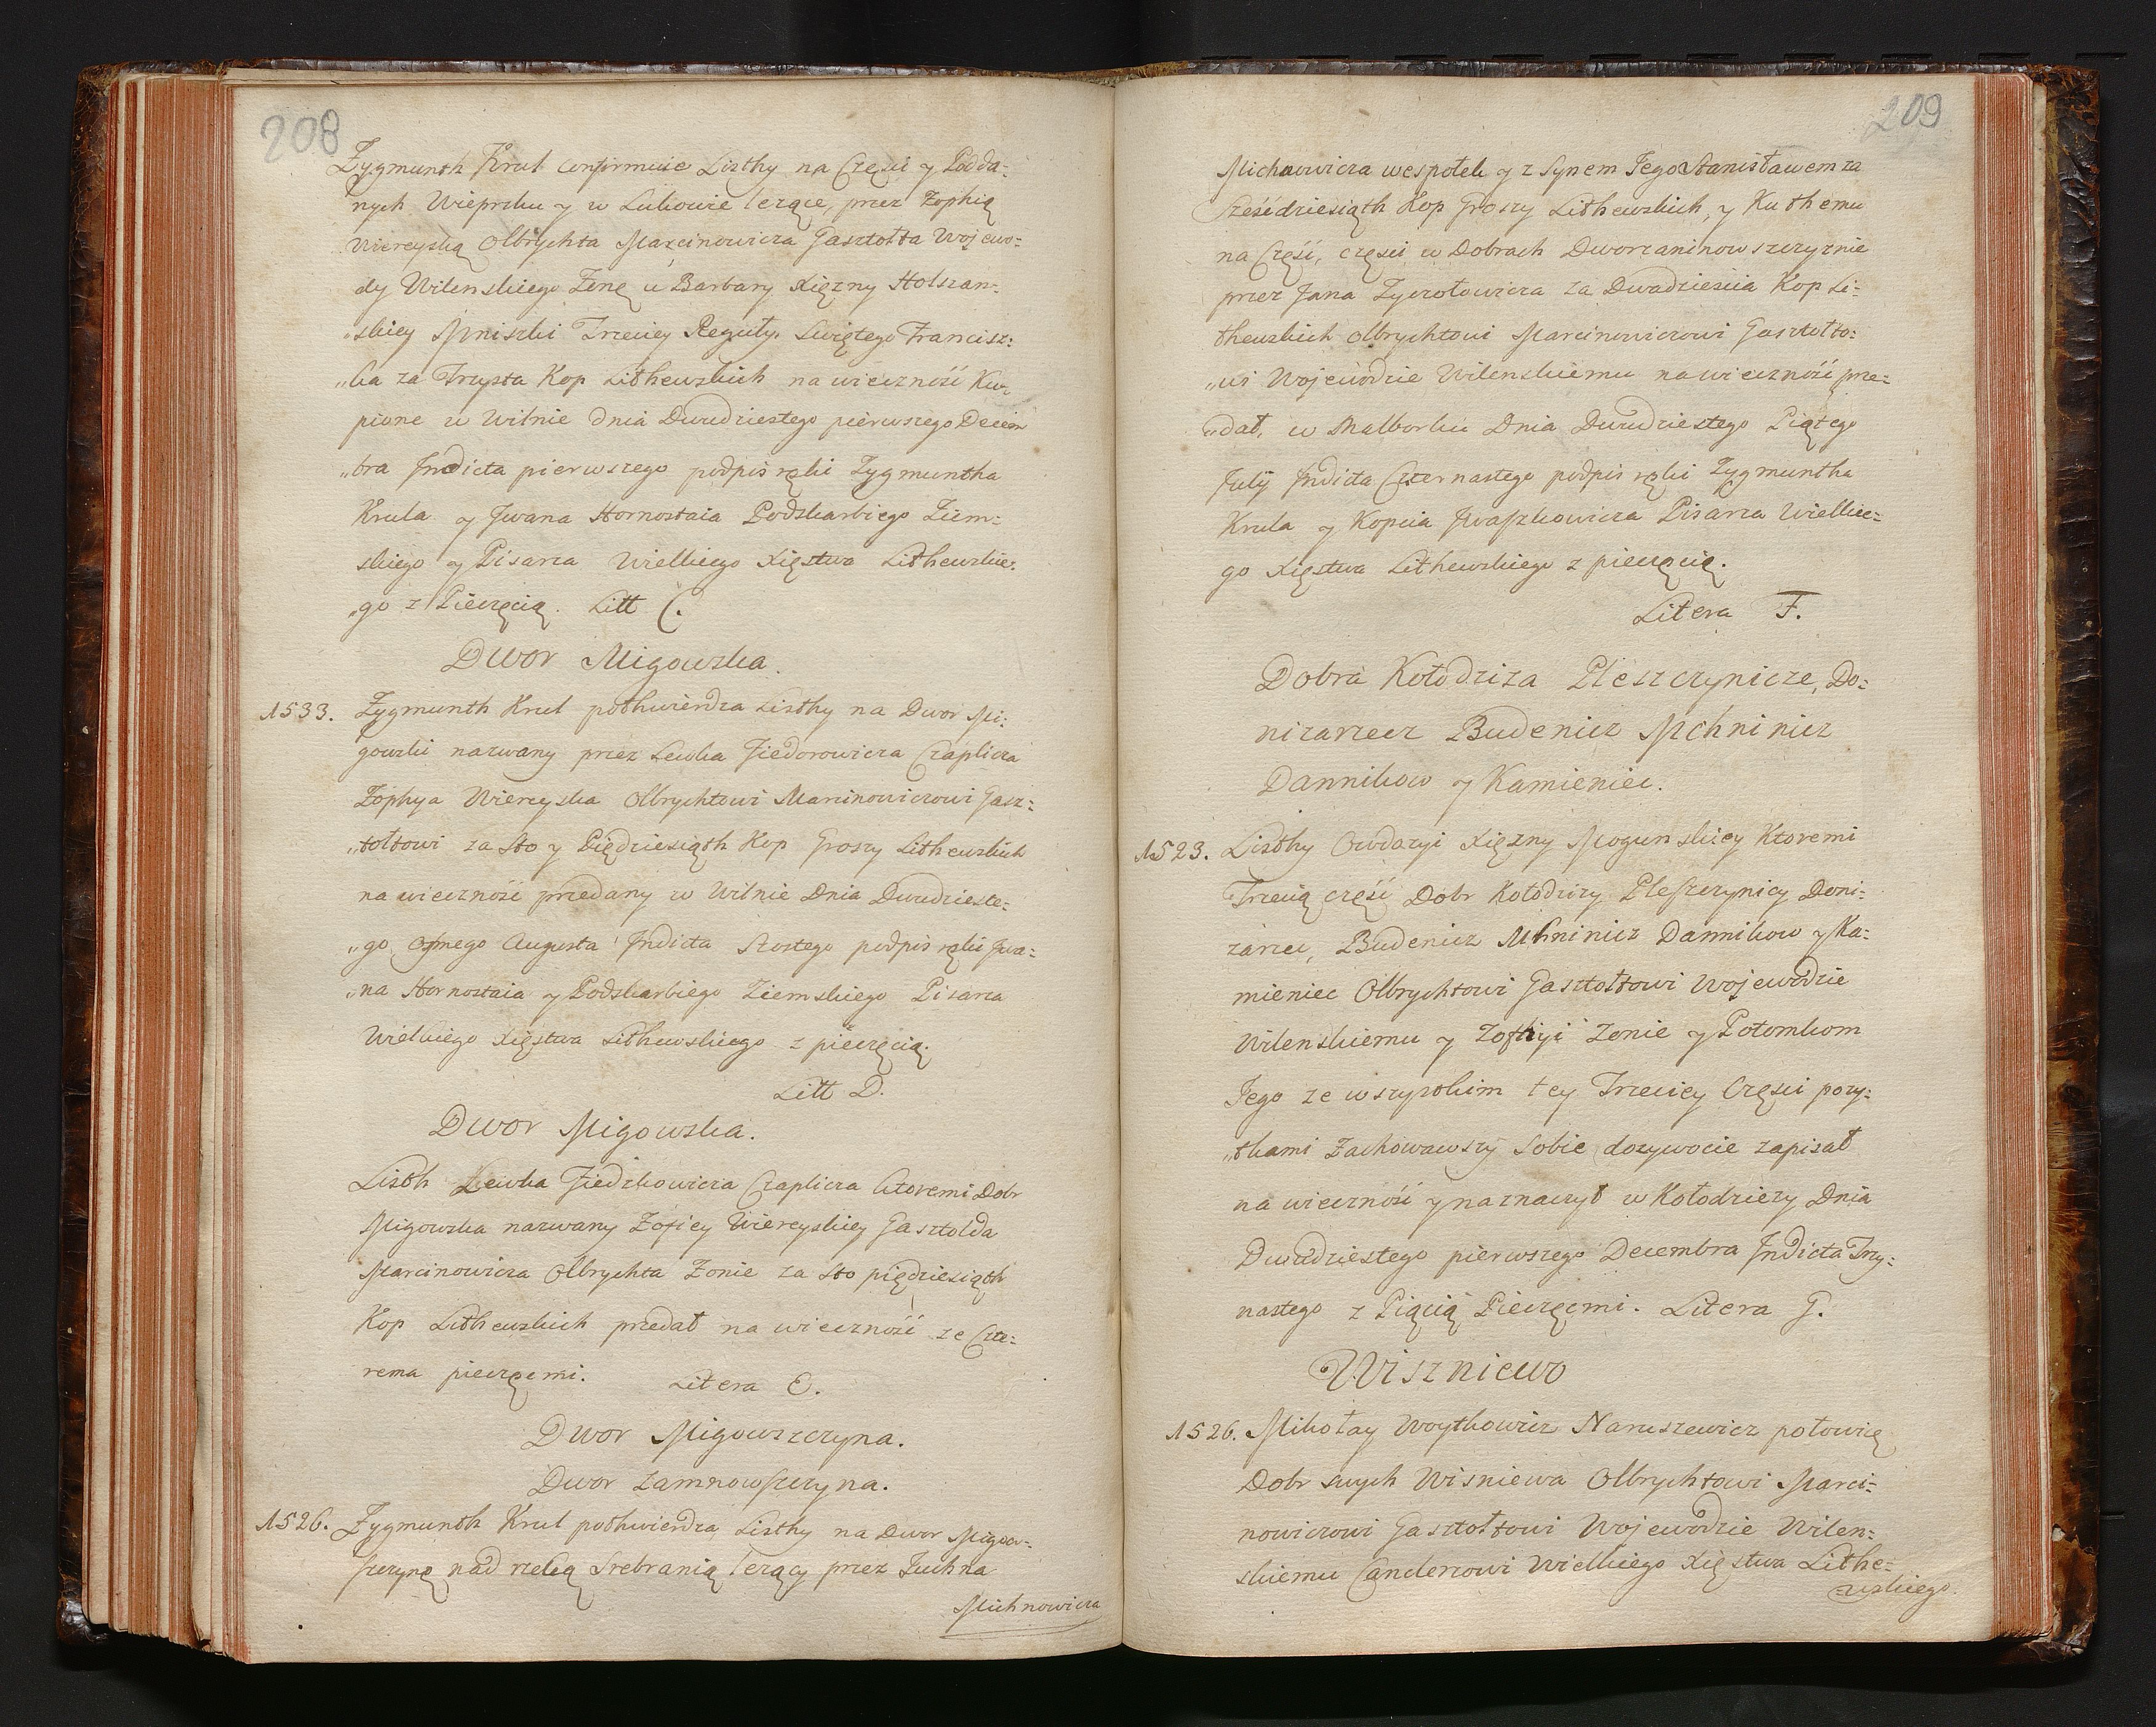 208
Zygmunth Krul Confirmuie Listhy na Częśći y Podda:
nych Wieprzku y w Lukowie lezące, przez Zophią
Wiereyską Olbrychta Marcinowicza Gasztołta Wojewo:
dy Wilenskiego Zenę u Barbary Xięzny Holszan:
skiey Mniszki Trzeciey Reguły Swiętego Francisz:
„ka za Trzysta Kop Lithewskich na wieczność Ku:
pione w Wilnie dnia Dwudziestego pierwszego Decem
„bra Indicta pierwszego podpis ręki Zygmuntha
Krula y Jwana Hornostaia Podskarbiego Ziem:
skiego y Pisarza Wielkiego Xięstwa Lithewskie:
„go z Pieczęcią. Litt C.
Dwor Migowska.
1533. Zygmunth Krul pothwierdza Listhy na Dwor Mi:
gowski nazwany przez Lewka Fiedorowicza Czaplicza
Zophya Wiereyska Olbrychtowi Marcinowiczowi Gasz:
„tołtowi za Sto y Pięćdziesiąth Kop Groszy Lithewskich
na wieczność przedany w Wilnie Dnia Dwudzieste:
„go Osmego Augusta Indicta Szostego podpis ręki Jwa:
„na Hornostaia y Podskarbiego Ziemskiego Pisarza
Wielkiego Xięstwa Lithewskiego z pieczęcią.
Litt D.
Dwor Migowska.
Listh Lewka Fiedzkowicza Czaplicza ktoremi Dobr
Migowska nazwany Zofiey Wiereyskiey Gasztolda
Marcinowicza Olbrychta Zonie za Sto pięćdziesiąth
Kop Lithewskich przedał na wieczność ze Czte:
rema pieczęćmi. Litera E.
Dwor Migowszczyna.
Dwor Zamnowszczyna.
1526. Zygmunth Krul pothwierdza Listhy na Dwor Migow:
szczynę nad rzeką Srebranią lezący przez Juchna
Michnowicza
209
Michnowicza wespołek y z Synem Jego Stanisławem za
Sześćdziesiąth Kop Groszy Lithewskich, y Ku themu
na Część, części w Dobrach Dworzaninow szczyznie
przez Jana Zyczołowicza za Dwadzieścia Kop Li:
thewskich Olbrychtowi Marcinowiczowi Gasztołto:
„wi Wojewodzie Wilenskiemu na wieczność prze:
„dał, w Malborku Dnia Dwudziestego Piątego
July Indicta Czternastego podpis ręki Zygmuntha
Krula y Kopcia Jwaszkowicza Pisarza Wielkie:
go Xięstwa Lithewskiego z pieczęcią.
Litera F.
Dobra Kołodziza Pleszczynicze, Do:
nizarzecz Budenicz Mchninicz
Dannikow y Kamieniec.
1523. Listhy Owdazyi Xięzny Mozunskiey Ktoremi
Trzecią część Dobr Kołodzizy Pleszczynicy Doni:
zarzec, Budenicz Mhninicz Dannikow y Ka:
mieniec Olbrychtowi Gasztołtowi Wojewodzie
Wilenskiemu y Zofiyi Zonie y Potomkom
Jego ze wszystkim tey Trzeciey Części pozy:
„tkami Zachowawszy Sobie dozywocie zapisał
na wieczność y naznaczył w Kołodziezy Dnia
Dwudziestego pierwszego Decembra Indicta Trzy:
nastego z Piącią Pieczęćmi. Litera G.
Wiszniewo
1526. Mikołay Woytkowicz Naruszewicz połowicę
Dobr swych Wisniewa Olbrychtowi Marci:
nowiczowi Gasztołtowi Wojewodzie Wilen:
skiemu Canclerzowi Wielkiego Xięstwa Lithe:
:wskiego